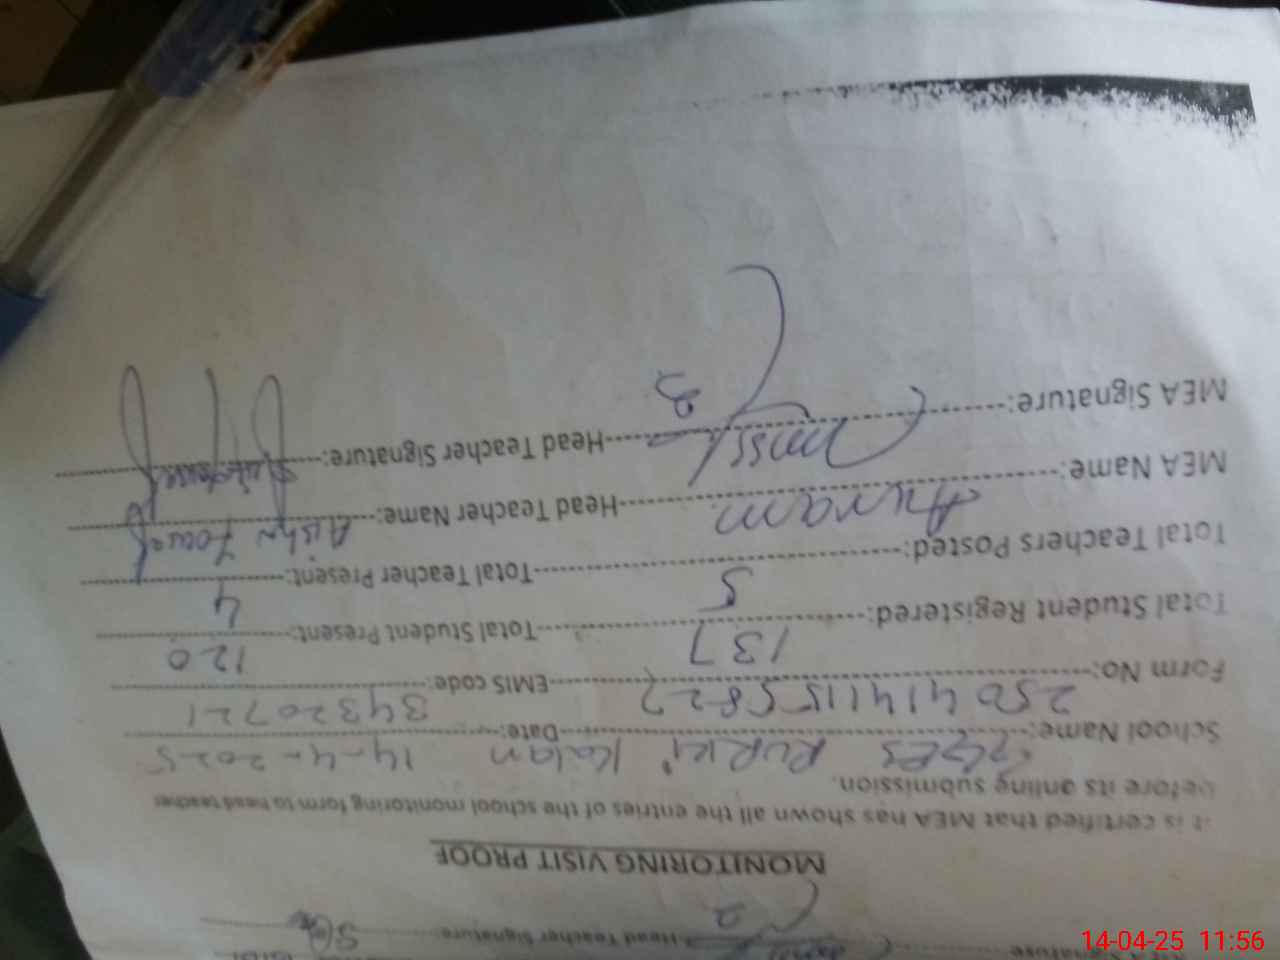 MEA Signature: Head Teacher Signature:
MONITORING VISIT PROOF
it is certified that MEA has shown all the entries of the monitoring form to head teacher
before its online submission.
School Name: GGPS RURKI Kalan Date: 14-4-2025
Form No: EMIS code: 34320721
Total Student Registered: 137 Total Student Present: 120
Total Teachers Posted: 5 Total Teacher Present: 4
MEA Name: Akram Head Teacher Name:
MEA Signature: Head Teacher Signature:
14-04-25 11:56